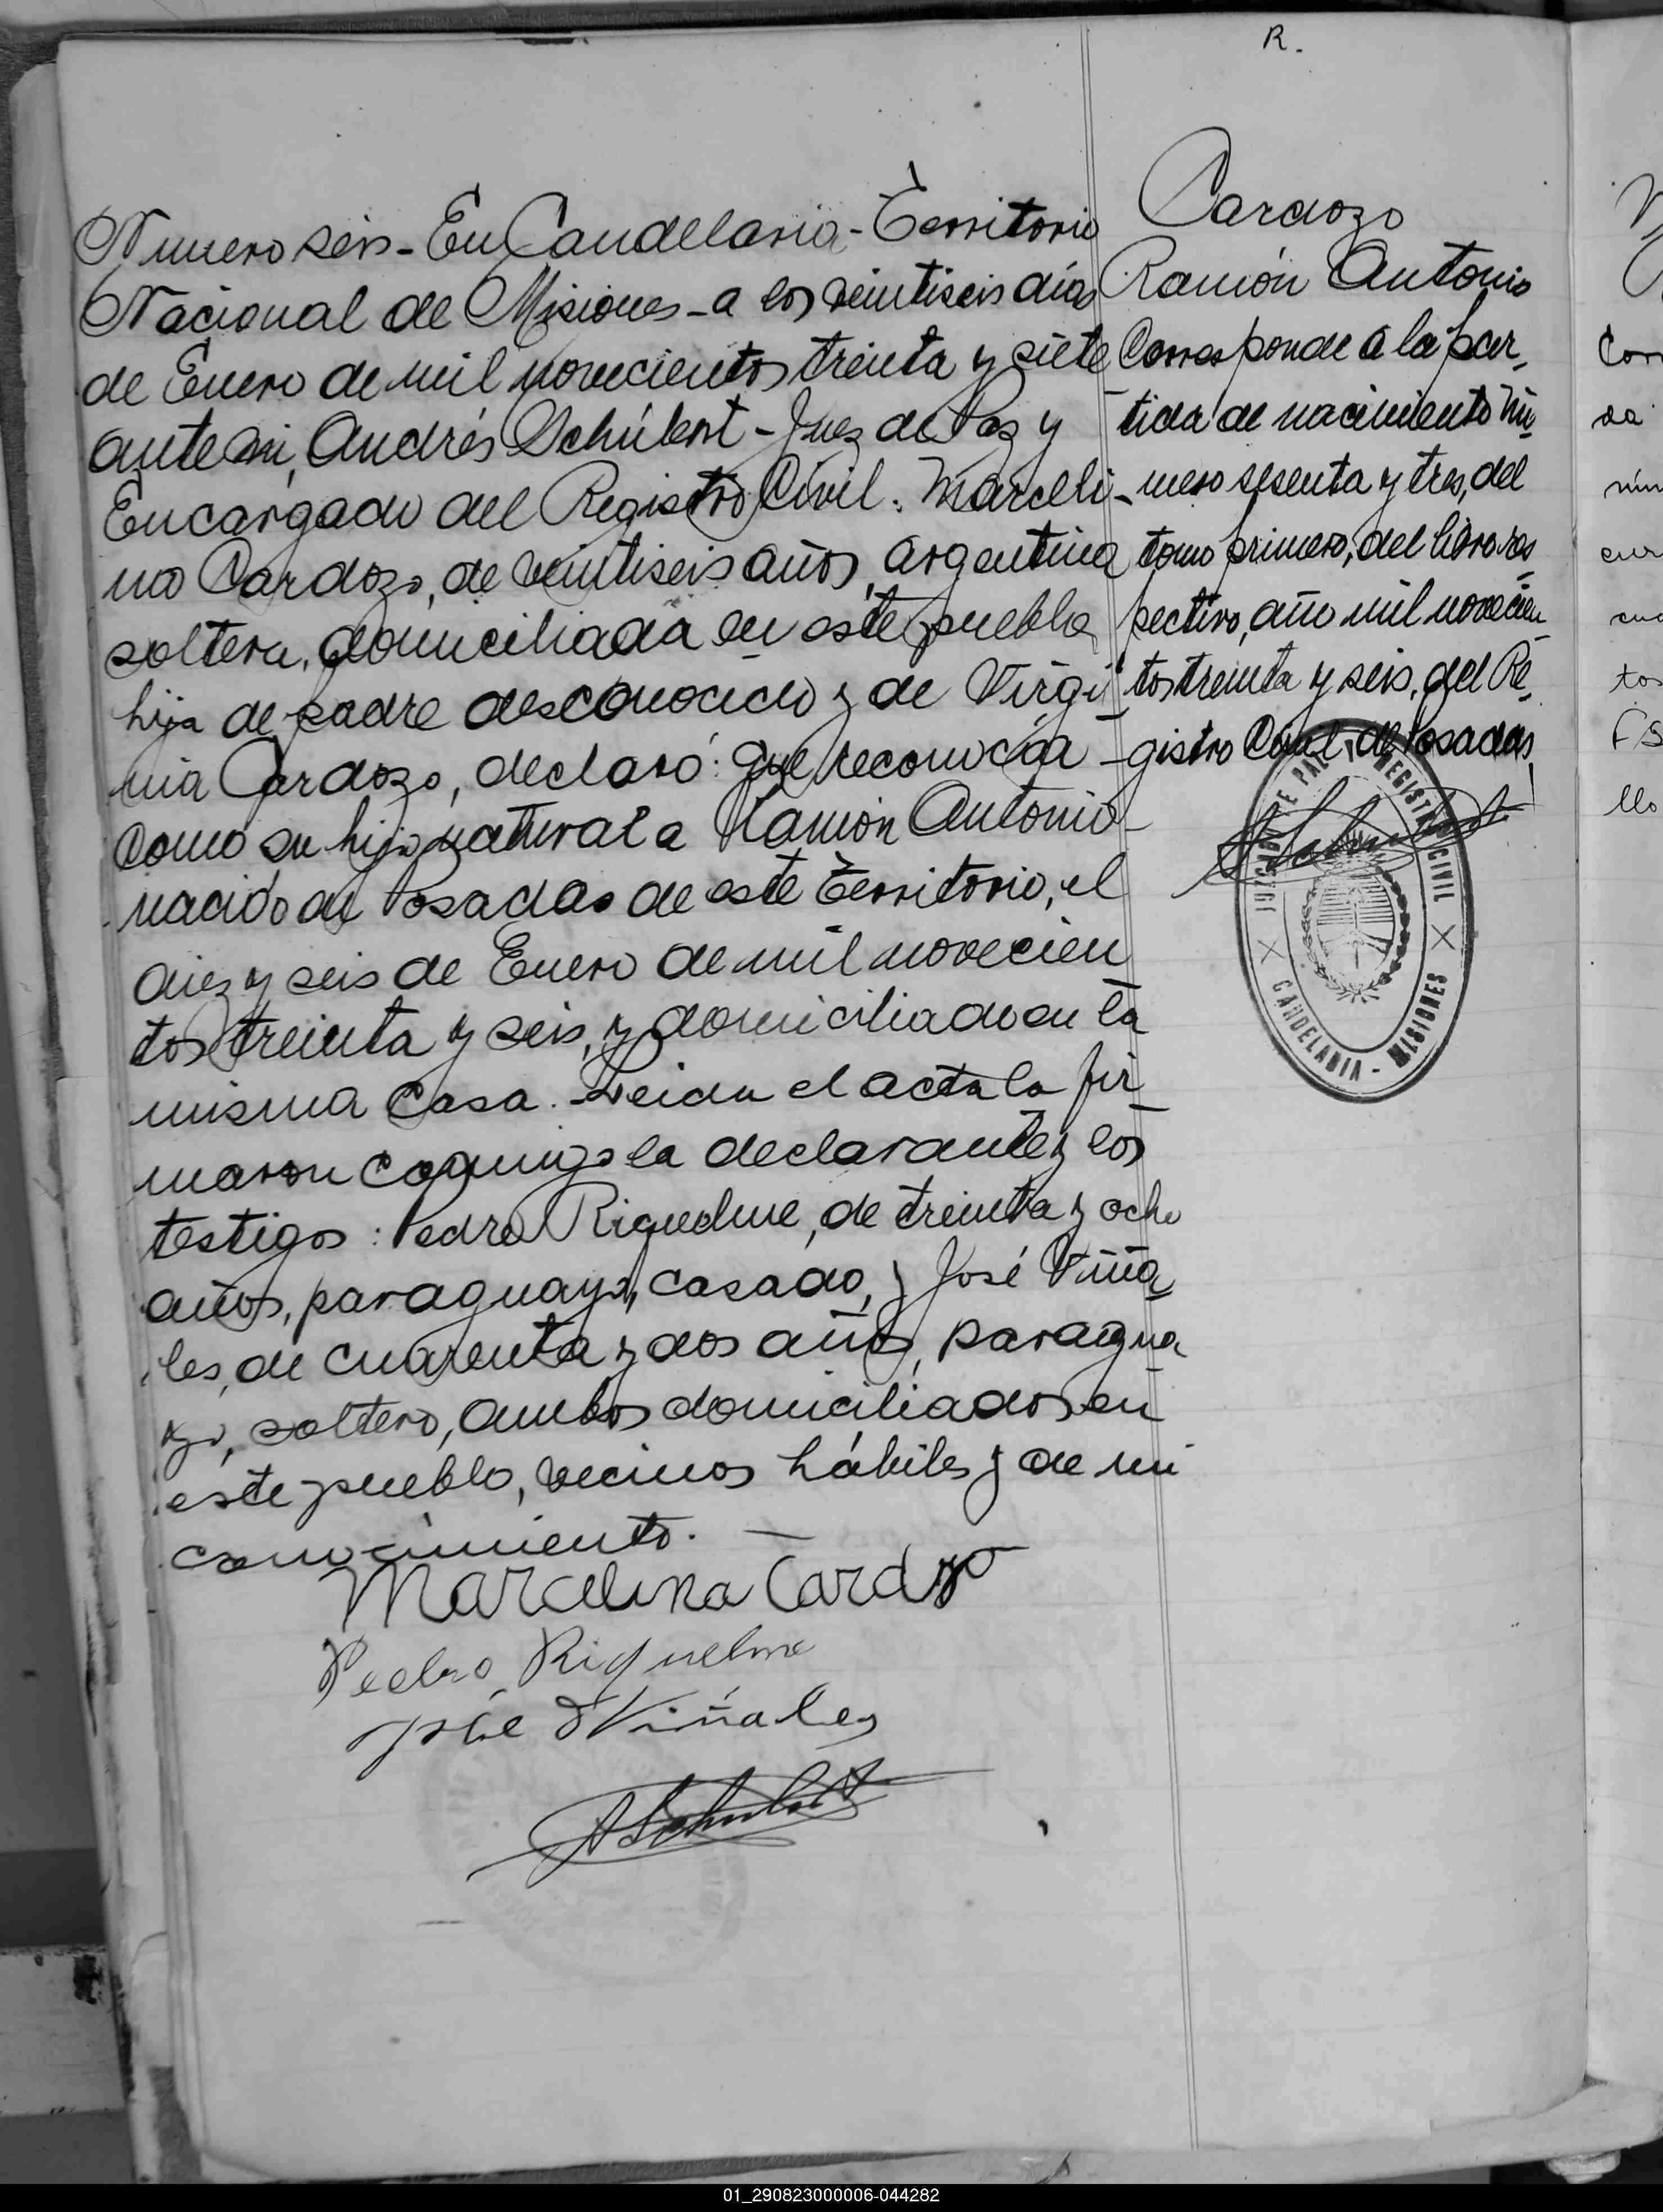 R.
Numero seis - En Candelaria - Territorio
Nacional de Misiones - a los veintiseis dias
de Enero de mil novecientos treinta y siete
ante mi, Andrés Schúbert - Juez de Paz y
Encargado del Registro Civil: Marceli-
na Cardozo, de veintiseis años, argentina
soltera, domiciliada en este pueblo,
hija de padre desconocido y de Virgi-
nia Cardozo, declaró: que reconocía
como su hijo natural a Ramón Antonio
nacido en Posadas de este Territorio, el
diez y seis de Enero de mil novecien
tos treinta y seis, y domiciliado en la
misma casa. Leida el acta la fir
maron conmigo la declarante y los
testigos: Pedro Riquelme, de treinta y ocho
años, paraguayo, casado, y José Viña
les, de cuarenta y dos años, paragua
yo, soltero, ambos domiciliados en
este pueblo, vecinos hábiles y de mi
conocimiento. —
Marcelina Cardozo
Pedro Riquelme
José Viñales
ASchubert
Cardozo
Ramón Antonio
Corresponde a la par-
tida de nacimiento nú-
mero sesenta y tres, del
tomo primero, del libro res
pectivo, año mil novecien
tos treinta y seis, del Re-
gistro Civil de Posadas
ASchubert
JUZGADO DE PAZ Y REGISTRO CIVIL
CANDELARIA - MISIONES
Cor
da
núm
cur
tos
llo
01_290823000006-044282